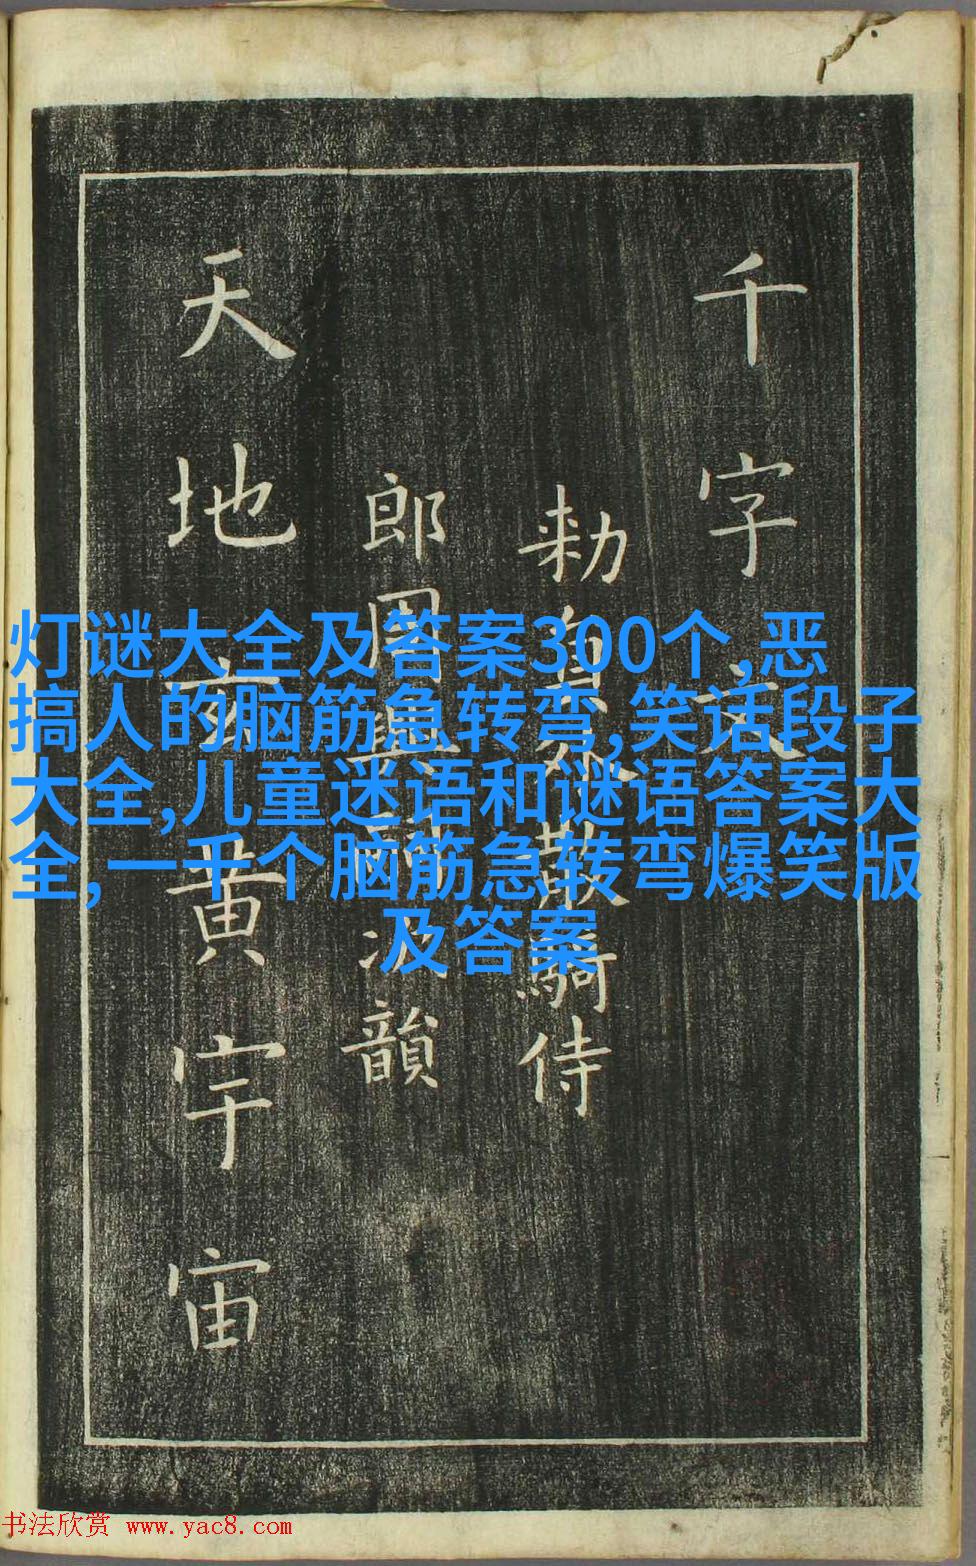 千字文
勅員外散騎侍
郎周興嗣次韻
天地玄黃宇宙
灯谜大全及答案300个,恶
搞人的脑筋急转弯,笑话段子
大全,儿童迷语和谜语答案大
全,一千个脑筋急转弯爆笑版
及答案
书法欣赏 www.yac8.com